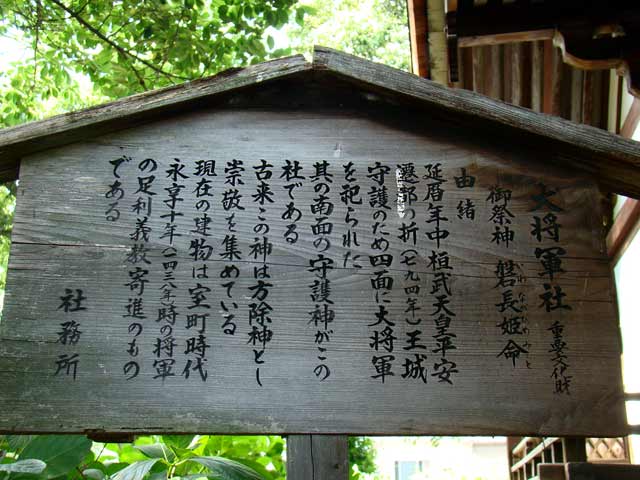 大将軍社 重要文化財
御祭神 磐長姫命
いわながひめのみこと
由緒
延暦年中桓武天皇平安
遷都の折(七九四年)王城
守護のため四面に大将軍
を祀られた
其の南面の守護神がこの
社である
古来この神は方除神とし
崇敬を集めている
現在の建物は室町時代
永享十年(一四三八年)時の将軍
の足利義教寄進のもの
である
社務所